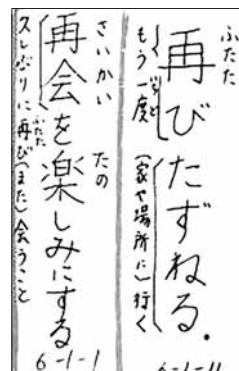 ふたた
再びたずねる。
もう一度
いちど
(家や場所に)行く
6-1-11
さいかい
たの
再会を楽しみにする
久しぶりに再び(また)会うこと
ふたた
6-1-1